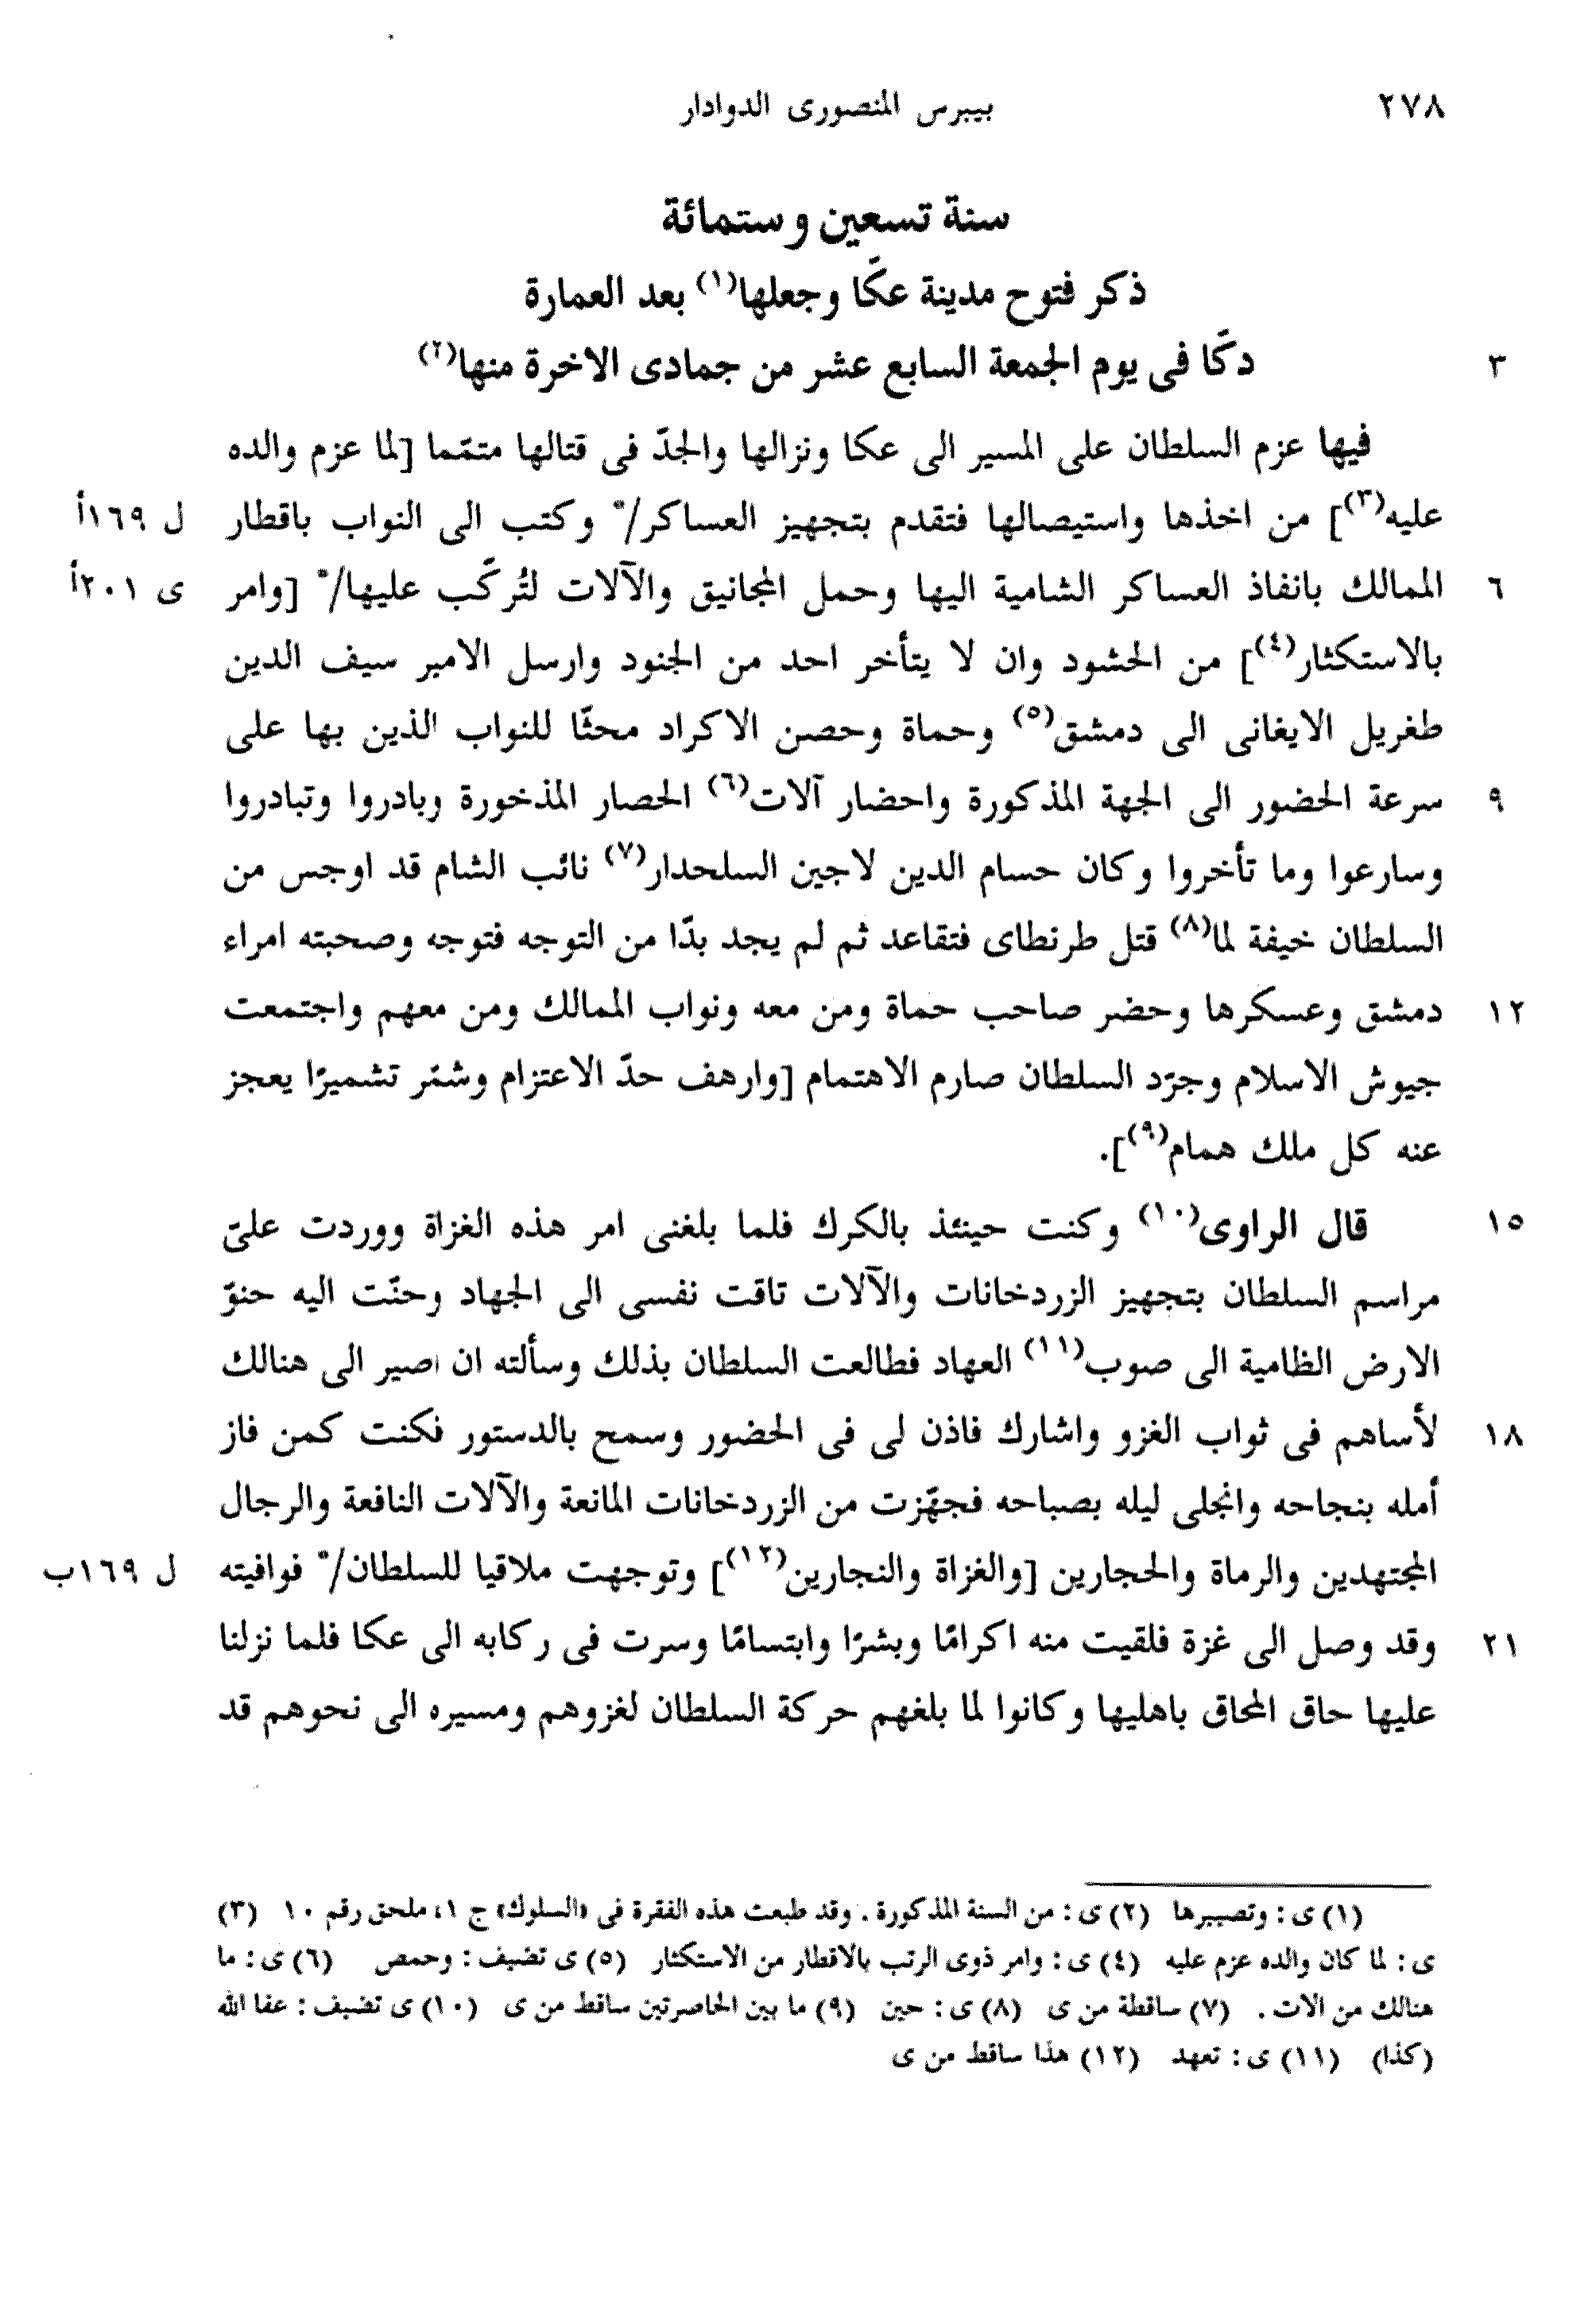 ٢٧٨ بيبرس المنصورى الدوادار
سنة تسعين وستمائة
ذكر فتوح مدينة عكّا وجعلها(١) بعد العمارة
٣ دكّا فى يوم الجمعة السابع عشر من جمادى الاخرة منها(٢)
فيها عزم السلطان على المسير الى عكا ونزالها والجدّ فى قتالها متمّما [لما عزم والده
عليه(٣)] من اخذها واستيصالها فتقدم بتجهيز العساكر/* وكتب الى النواب باقطار ل ١٦٩أ
٦ الممالك بانفاذ العساكر الشامية اليها وحمل المجانيق والآلات لتُركَّب عليها/* [وامر ى ٢٠١أ
بالاستكثار(٤)] من الحشود وان لا يتأخر احد من الجنود وارسل الامير سيف الدين
طغريل الايغانى الى دمشق(٥) وحماة وحصن الاكراد محثّا للنواب الذين بها على
٩ سرعة الحضور الى الجهة المذكورة واحضار آلات(٦) الحصار المذخورة وبادروا وتبادروا
وسارعوا وما تأخروا وكان حسام الدين لاجين السلحدار(٧) نائب الشام قد اوجس من
السلطان خيفة لما(٨) قتل طرنطاى فتقاعد ثم لم يجد بدّا من التوجه فتوجه وصحبته امراء
١٢ دمشق وعسكرها وحضر صاحب حماة ومن معه ونواب الممالك ومن معهم واجتمعت
جيوش الاسلام وجرّد السلطان صارم الاهتمام [وارهف حدّ الاعتزام وشمّر تشميرًا يعجز
عنه كل ملك همام(٩)].
١٥ قال الراوى(١٠) وكنت حينئذ بالكرك فلما بلغنى امر هذه الغزاة ووردت علىّ
مراسم السلطان بتجهيز الزردخانات والآلات تاقت نفسى الى الجهاد وحنّت اليه حنوّ
الارض الظامية الى صوب(١١) العهاد فطالعت السلطان بذلك وسألته ان اصير الى هنالك
١٨ لأساهم فى ثواب الغزو واشارك فاذن لى فى الحضور وسمح بالدستور فكنت كمن فاز
أمله بنجاحه وانجلى ليله بصباحه فجهّزت من الزردخانات المانعة والآلات النافعة والرجال
المجتهدين والرماة والحجارين [والغزاة والنجارين(١٢)] وتوجهت ملاقيا للسلطان/* فوافيته ل ١٦٩ب
٢١ وقد وصل الى غزة فلقيت منه اكرامًا وبشرًا وابتسامًا وسرت فى ركابه الى عكا فلما نزلنا
عليها حاق المحاق باهليها وكانوا لما بلغهم حركة السلطان لغزوهم ومسيره الى نحوهم قد
(١) ى : وتصييرها (٢) ى : من السنة المذكورة . وقد طبعت هذه الفقرة فى «السلوك» ج ١، ملحق رقم ١٠ (٣)
ى : لما كان والده عزم عليه (٤) ى : وامر ذوى الرتب بالاقطار من الاستكثار (٥) ى تضيف : وحمص (٦) ى : ما
هنالك من الات . (٧) ساقطة من ى (٨) ى : حين (٩) ما بين الحاصرتين ساقط من ى (١٠) ى تضيف : عفا الله
(كذا) (١١) ى : تعهد (١٢) هذا ساقط من ى